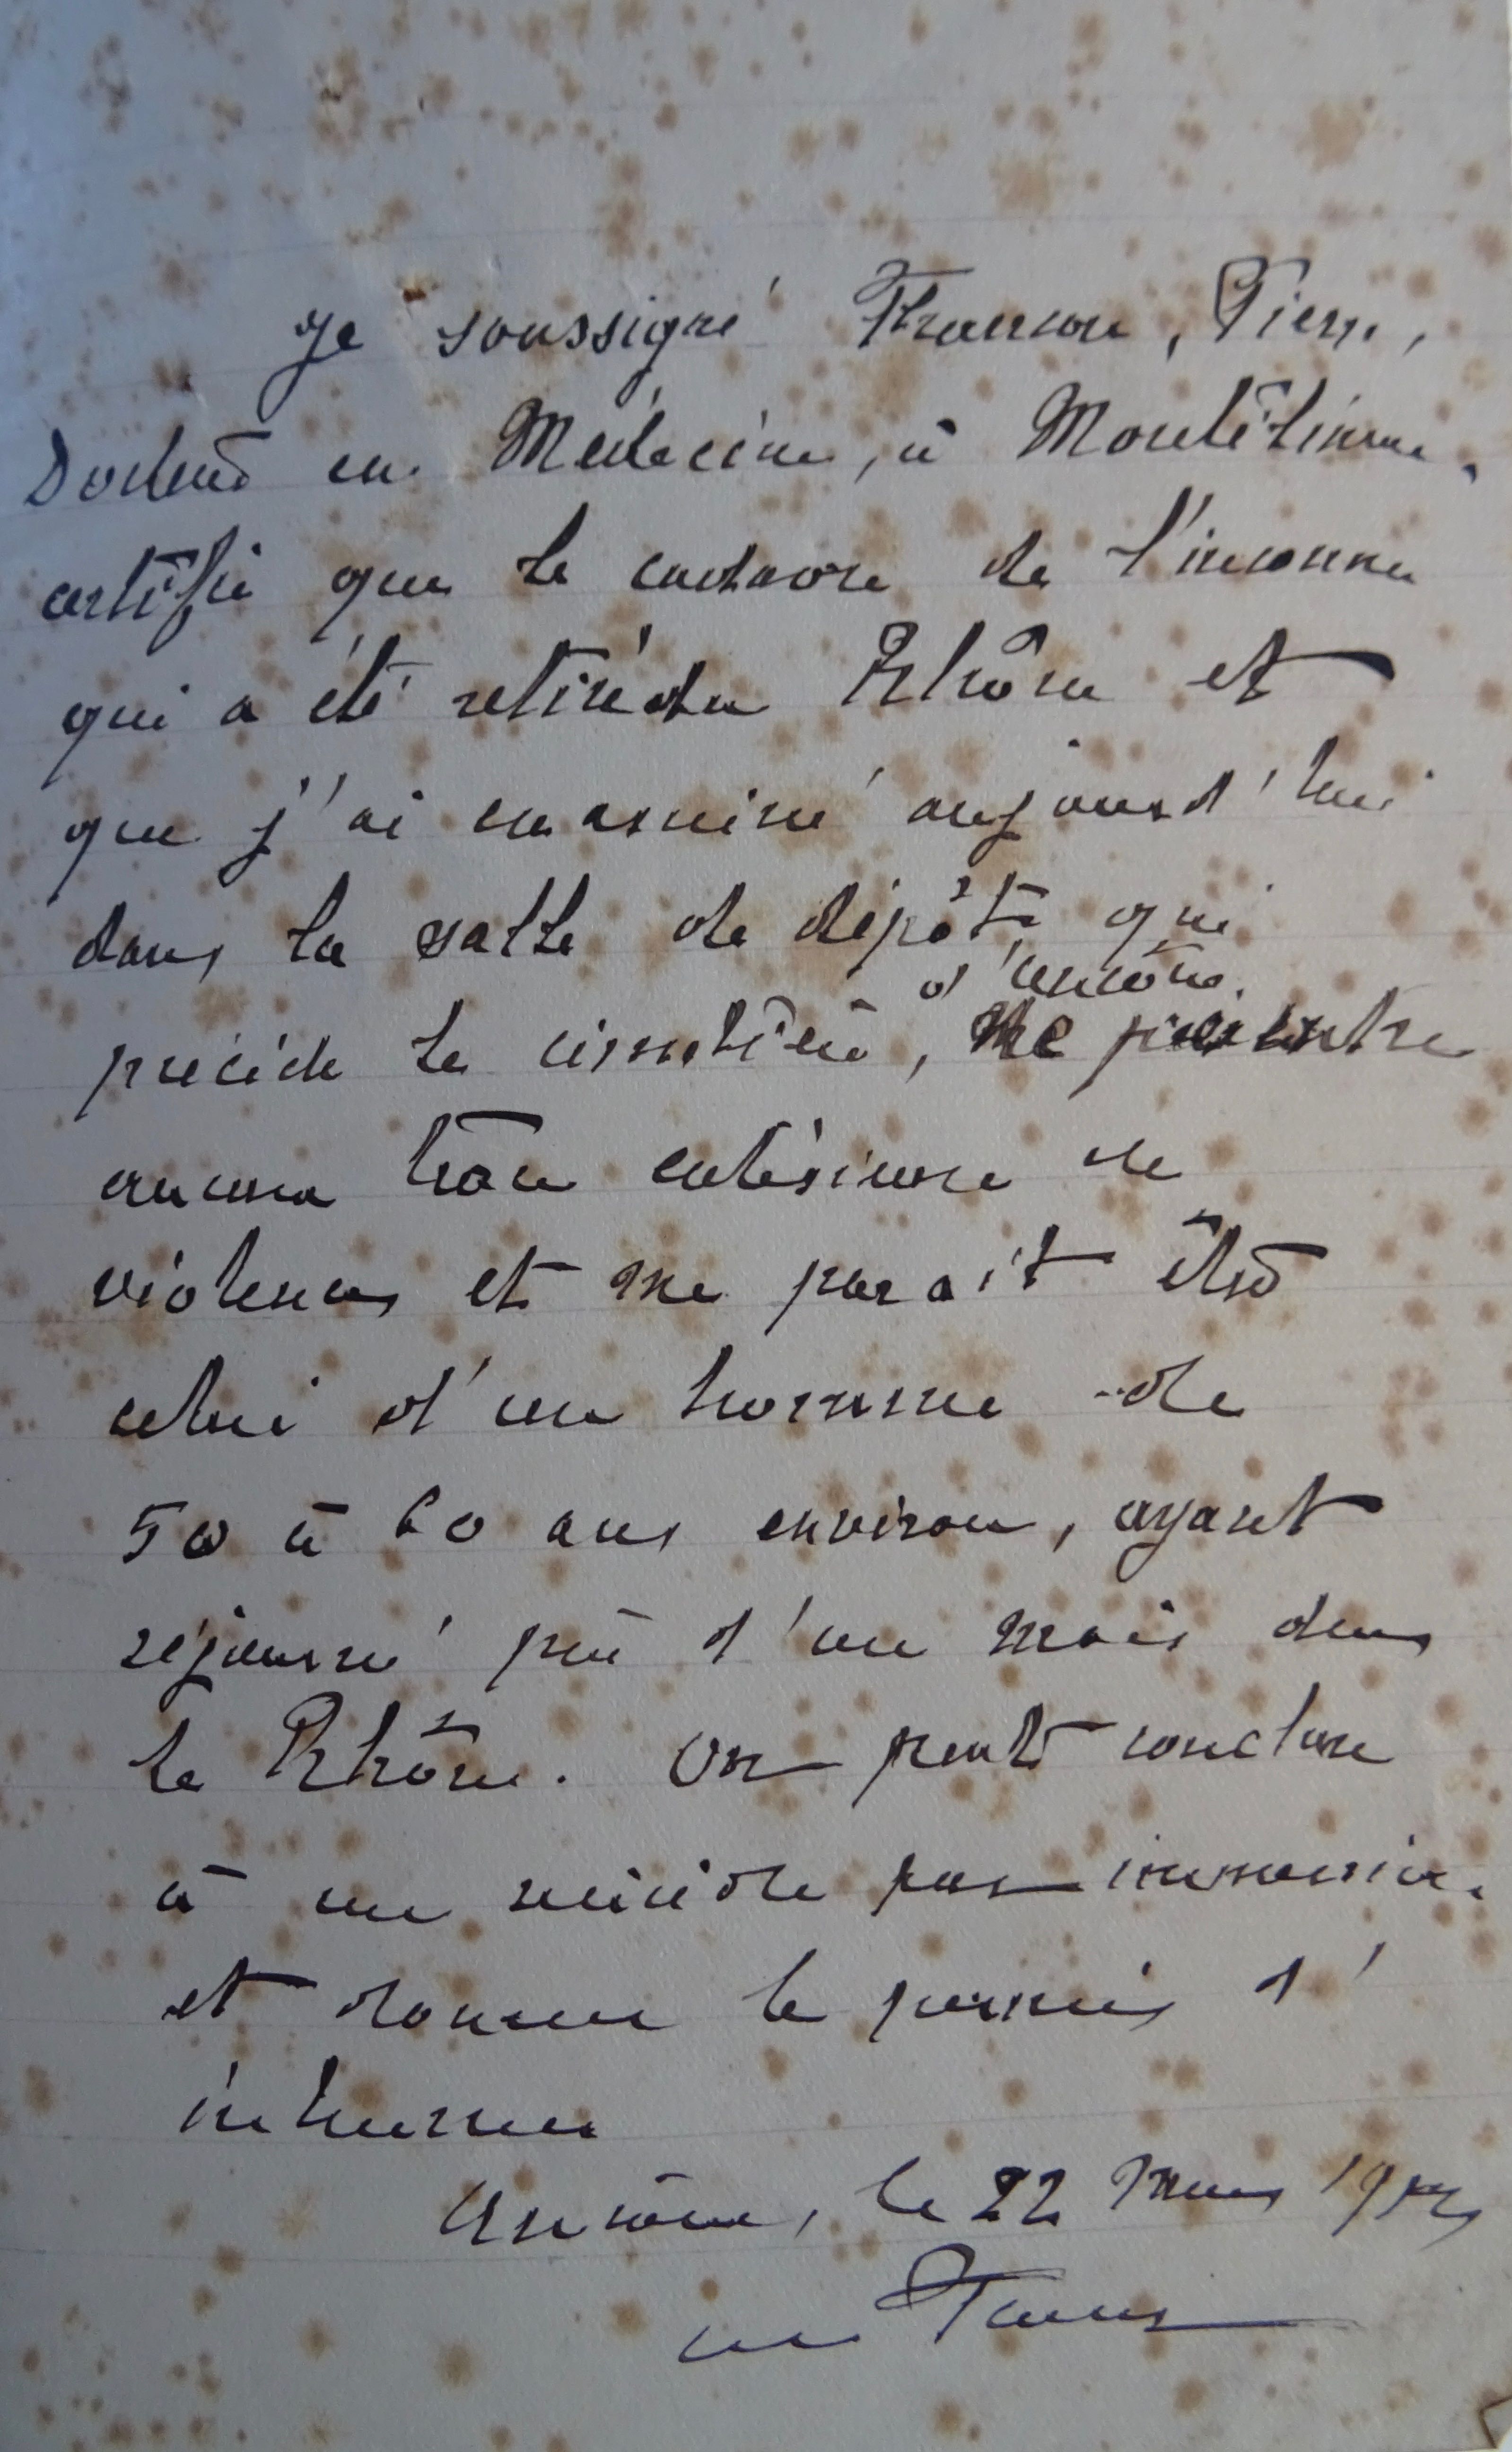 Je soussigné Francou, Pierre,
Docteur en Médecine, à Montélimar,
certifie que le cadavre de l'inconnu
qui a été retiré du Rhône et
que j'ai examiné aujourd'hui
dans la salle de dépôt, qui
d'Ancône.
précède le cimetière, ne présente
aucune trace extérieure de
violences et me parait être
celui d'un homme de
50 à 60 ans environ, ayant
séjourné près d'un mois dans
le Rhône. On peut conclure
à un suicide par immersion.
et donner le permis d'
inhumer
Ancône, le 22 Mars